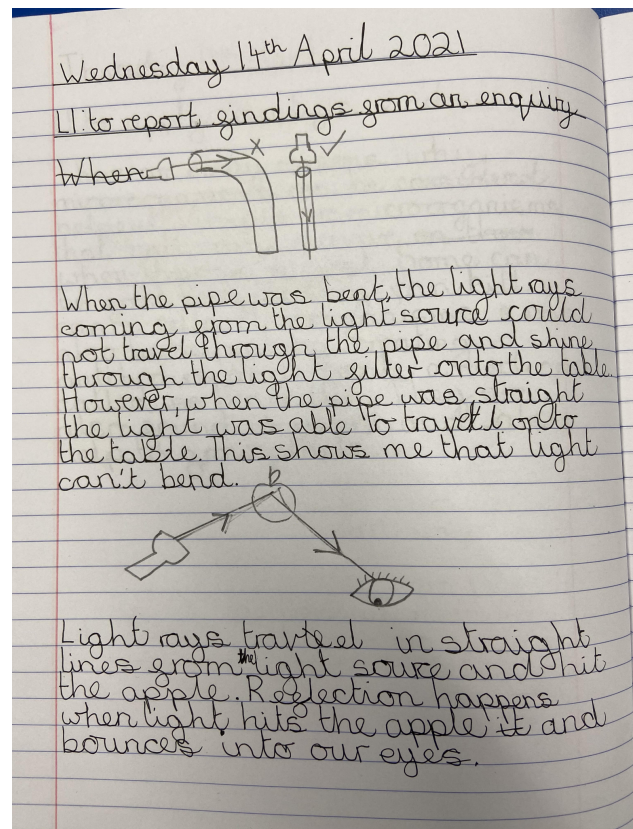 Wednesday 14th April 2021
LI: to report findings from an enquiry
When
When the pipe was bent, the light rays
coming from the light source could
not travel through the pipe and shine
through the light filter onto the table.
However, when the pipe was straight
the light was able to travel onto
the table. This shows me that light
can't bend.
Light rays travel in straight
lines from the light source and hit
the apple. Reflection happens
when light hits the apple it and
bounces into our eyes.